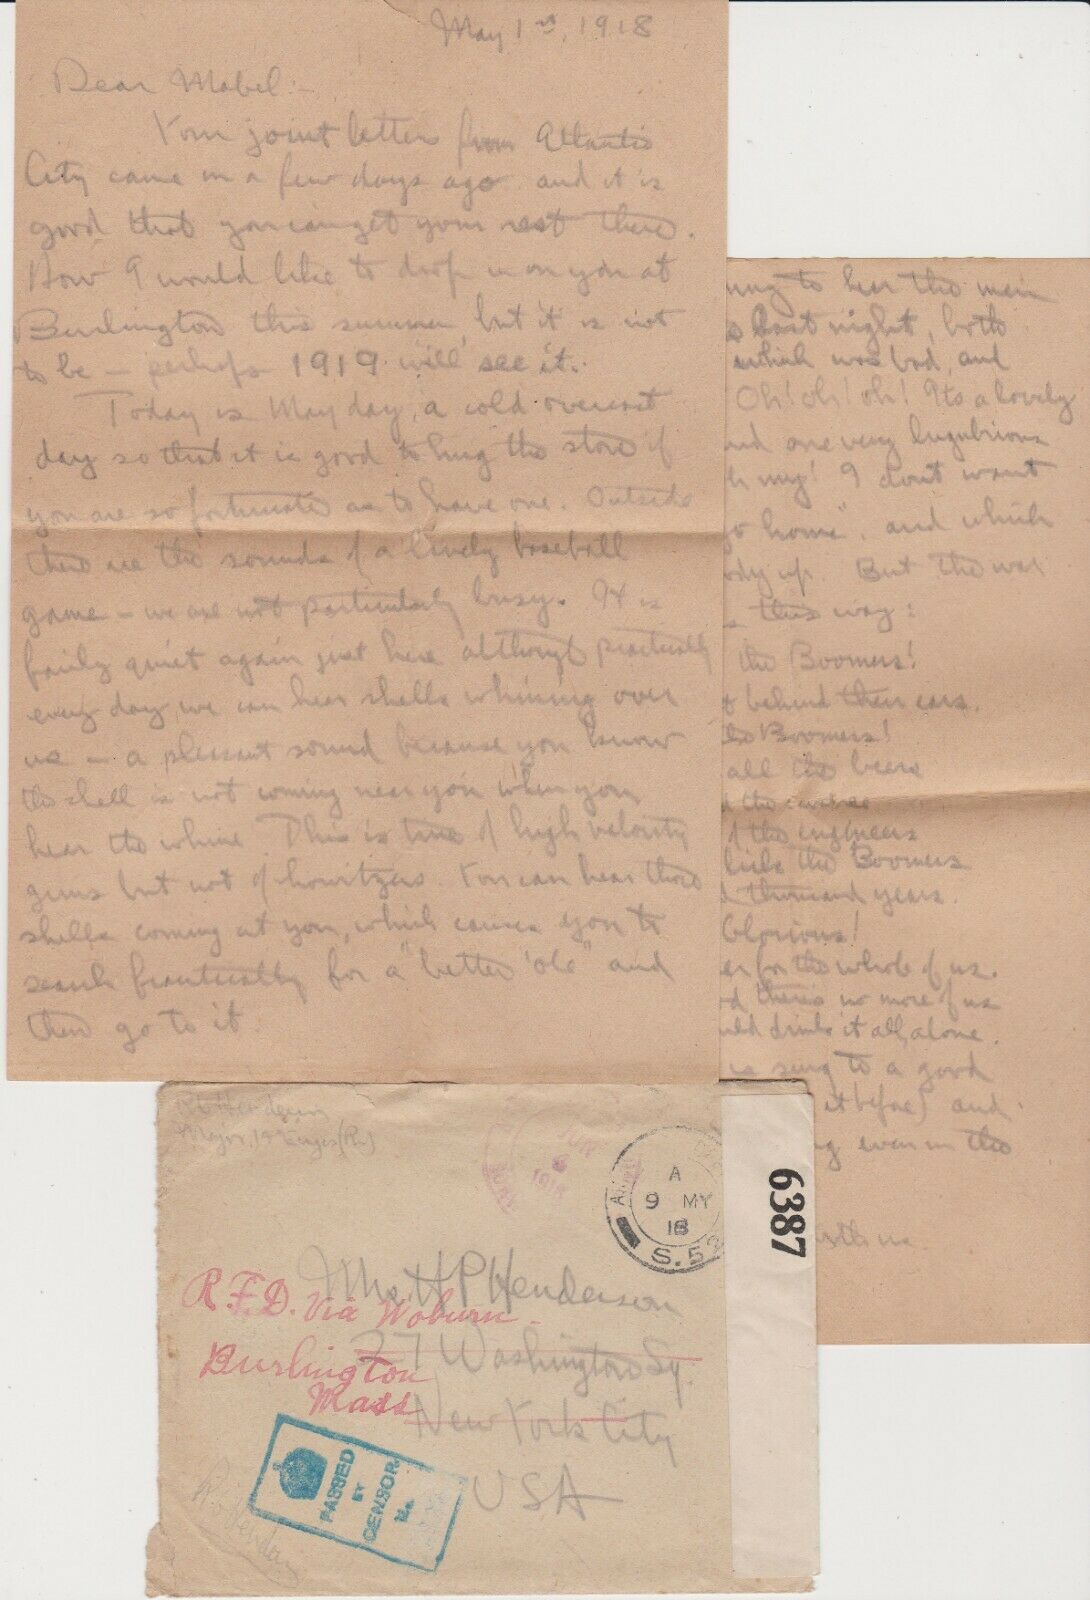 May 1st, 1918
Dear Mabel:-
Your joint letters from Atlantic
City came in a few days ago and it is
good that you can get your rest there.
How I would like to drop in on you at
Burlington this summer but it is not
to be — perhaps 1919 will see it.
Today is May day, a cold overcast
day so that it is good to hug the stove if
you are so fortunate as to have one. Outside
there are the sounds of a lively baseball
game — we are not particularly busy. It is
fairly quiet again just here although practically
every day, we can hear shells whining over
us — a pleasant sound because you know
the shell is not coming near you when you
hear the whine. This is true of high velocity
guns but not of howitzers. You can hear those
shells coming at you, which causes you to
search frantically for a "better 'ole" and
then go to it.
to hear the men
last night, both
which was bad, and
Oh! oh! oh! Its a lovely
and one very lugubrious
my! I dont want
go home", and which
up. But the war
this way:
the Boomers!
behind their ears.
Boomers!
all the beers
the
of the engineers
the Boomers
thousand years.
Glorious!
for the whole of us.
there's no more of us
drink it all alone.
is sung to a good
it before) and
even in the
R Henderson
Major, 14 Engrs (Ry)
JUN
1918
A
9 MY
18
S.52
6387
Mrs. H P Henderson
27 Washington Sq.
New York City
USA
R.F.D. via Woburn
Burlington
Mass
PASSED
BY
CENSOR
No.